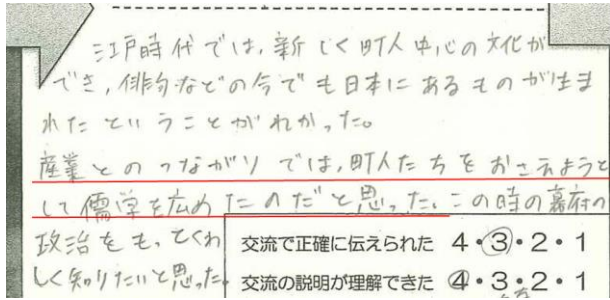 江戸時代では、新しく町人中心の文化が
でき、俳句などの今でも日本にあるものが生ま
れたということがわかった。
産業とのつながりでは、町人たちをおさえようと
して儒学を広めたのだと思った。この時の幕府の
政治をもっとくわ
しく知りたいと思った。
交流で正確に伝えられた 4・3・2・1
交流の説明が理解できた 4・3・2・1